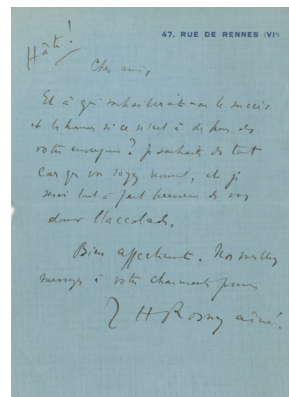 47, RUE DE RENNES (VIᵉ)
Hâte !
Cher ami,
Et à qui souhaiterait-on le succès
et les honneurs si ce n'est à des hommes de
votre envergure ? Je souhaite de tout
cœur que vous soyez nommé, et je
serai tout à fait heureux de vous
donner l'accolade.
Bien affectueusement. Nos meilleurs
messages à votre charmante femme
J H Rosny aîné.